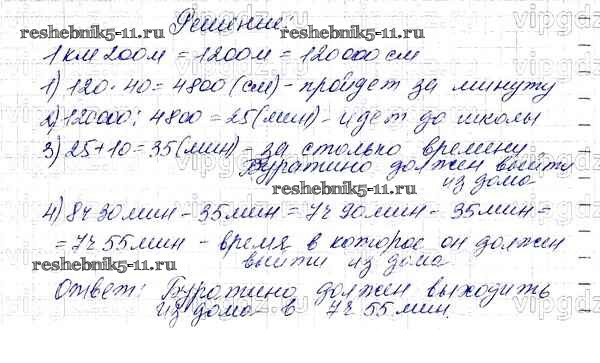 Решение:
reshebnik5-11.ru reshebnik5-11.ru
1 км 200м = 1200м = 120000 см
1) 120 · 40 = 4800 (см) - пройдет за минуту
2) 120000 : 4800 = 25 (мин) - идет до школы
3) 25 + 10 = 35 (мин) - за столько времени
Буратино должен выйти
reshebnik5-11.ru из дома
4) 8ч 30мин - 35мин = 7ч 90мин - 35мин =
= 7ч 55мин - время в которое он должен
reshebnik5-11.ru выйти из дома.
Ответ: Буратино должен выходить
из дома в 7ч 55мин.
vipgdz